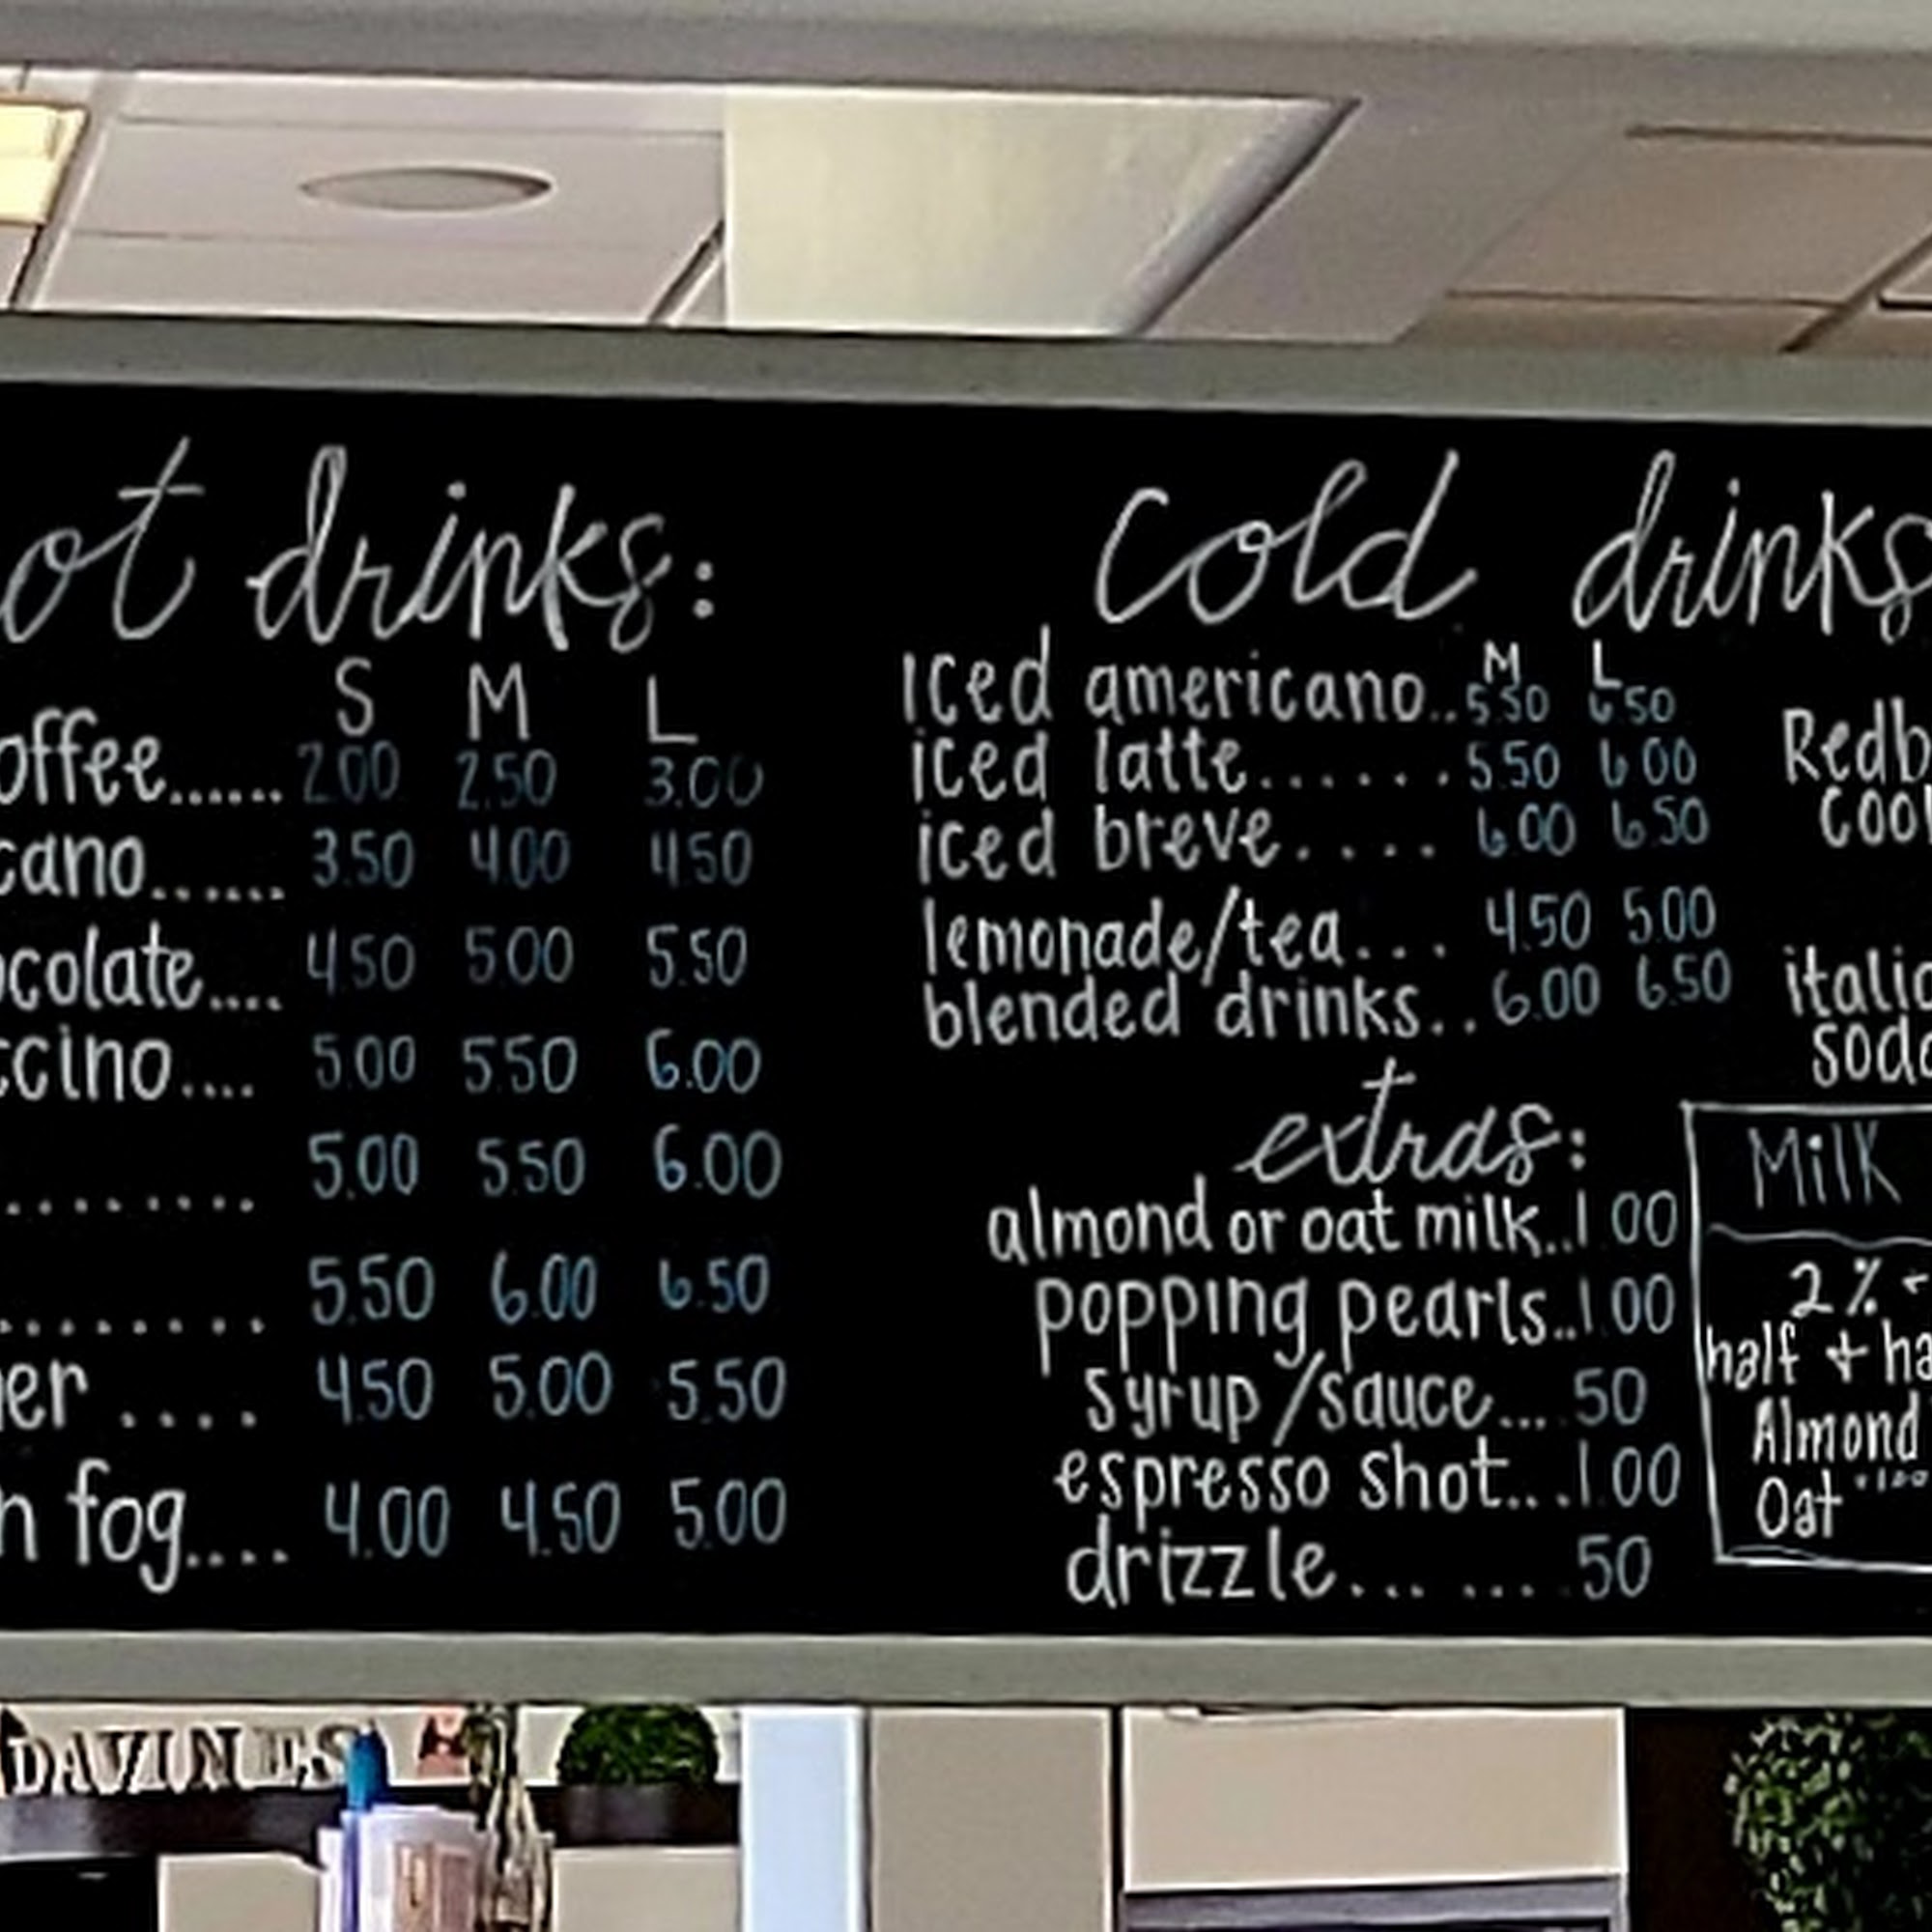 ot drinks:
S M L
offee...... 2.00 2.50 3.00
cano...... 3.50 4.00 4.50
ocolate.... 4.50 5.00 5.50
ccino.... 5.00 5.50 6.00
......... 5.00 5.50 6.00
......... 5.50 6.00 6.50
er .... 4.50 5.00 5.50
n fog.... 4.00 4.50 5.00
cold drinks
M L
iced americano.. 5.50 6.50
iced latte....... 5.50 6.00
iced breve.... 6.00 6.50
lemonade/tea... 4.50 5.00
blended drinks.. 6.00 6.50
extras:
almond or oat milk.. 1.00
popping pearls.. 1.00
syrup/sauce... .50
espresso shot... .1.00
drizzle... ... .50
Redb
coo
italia
soda
Milk
2%
half + ha
Almond
Oat
DAVINES